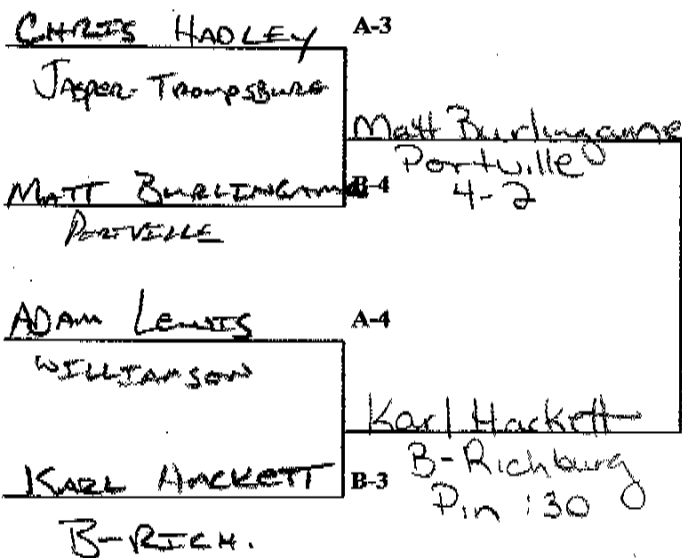 CHRIS HADLEY A-3
JASPER-TROUPSBURG
Matt Burlingame
Portville
4-2
MATT BURLINGAME B-4
PORTVILLE
ADAM LEWIS A-4
WILLIAMSON
Karl Hackett
B-Richburg
Pin :30
KARL HACKETT B-3
B-RICH.